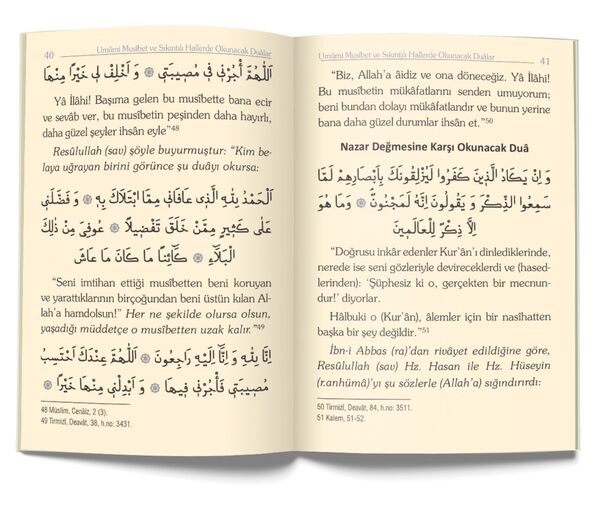 40
Umûmi Musîbet ve Sıkıntılı Hallerde Okunacak Duâlar
اَللّٰهُمَّ أْجُرْن۪ي ف۪ي مُص۪يبَت۪ي ❁ وَ اَخْلِفْ ل۪ي خَيْرًا مِنْهَا
Yâ İlâhi! Başıma gelen bu musîbette bana ecir
ve sevâb ver, bu musîbetin peşinden daha hayırlı,
daha güzel şeyler ihsân eyle”48
Resûlullah (sav) şöyle buyurmuştur: “Kim be-
laya uğrayan birini görünce şu duâyı okursa:
اَلْحَمْدُ لِلّٰهِ الَّذ۪ي عَافَان۪ي مِمَّا ابْتَلَاكَ بِه۪ ❁ وَ فَضَّلَن۪ي
عَلٰى كَث۪يرٍ مِمَّنْ خَلَقَ تَفْض۪يلًا ❁ عُوفِيَ مِنْ ذٰلِكَ
الْبَلَٓاءِ ❁ كَٓائِنًا مَا كَانَ مَا عَاشَ
“Seni imtihan ettiği musîbetten beni koruyan
ve yarattıklarının birçoğundan beni üstün kılan Al-
lah’a hamdolsun!” Her ne şekilde olursa olsun,
yaşadığı müddetçe o musîbetten uzak kalır.”49
اِنَّا لِلّٰهِ وَ اِنَّٓا اِلَيْهِ رَاجِعُونَ ❁ اَللّٰهُمَّ عِنْدَكَ اَحْتَسِبُ
مُص۪يبَت۪ي فَأْجُرْن۪ي ف۪يهَا ❁ وَ اَبْدِلْن۪ي مِنْهَا خَيْرًا ❁
48 Müslim, Cenâiz, 2 (3).
49 Tirmizî, Deavât, 38, h.no: 3431.
Umûmi Musîbet ve Sıkıntılı Hallerde Okunacak Duâlar
41
“Biz, Allah’a âidiz ve ona döneceğiz. Yâ İlâhi!
Bu musîbetin mükâfatlarını senden umuyorum;
beni bundan dolayı mükâfatlandır ve bunun yerine
bana daha güzel durumlar ihsân et.”50
Nazar Değmesine Karşı Okunacak Duâ
وَ اِنْ يَكَادُ الَّذ۪ينَ كَفَرُوا لَيُزْلِقُونَكَ بِاَبْصَارِهِمْ لَمَّا
سَمِعُوا الذِّكْرَ وَ يَقُولُونَ اِنَّهُ لَمَجْنُونٌ ❁ وَمَا هُوَ
اِلَّا ذِكْرٌ لِلْعَالَم۪ينَ
“Doğrusu inkâr edenler Kur’ân’ı dinlediklerinde,
nerede ise seni gözleriyle devireceklerdi ve (hased-
lerinden): ‘Şüphesiz ki o, gerçekten bir mecnun-
dur!’ diyorlar.
Hâlbuki o (Kur’ân), âlemler için bir nasîhatten
başka bir şey değildir.”51
İbn-i Abbas (ra)’dan rivâyet edildiğine göre,
Resûlullah (sav) Hz. Hasan ile Hz. Hüseyin
(r.anhümâ)’yı şu sözlerle (Allah’a) sığındırırdı:
50 Tirmizî, Deavât, 84, h.no: 3511.
51 Kalem, 51-52.